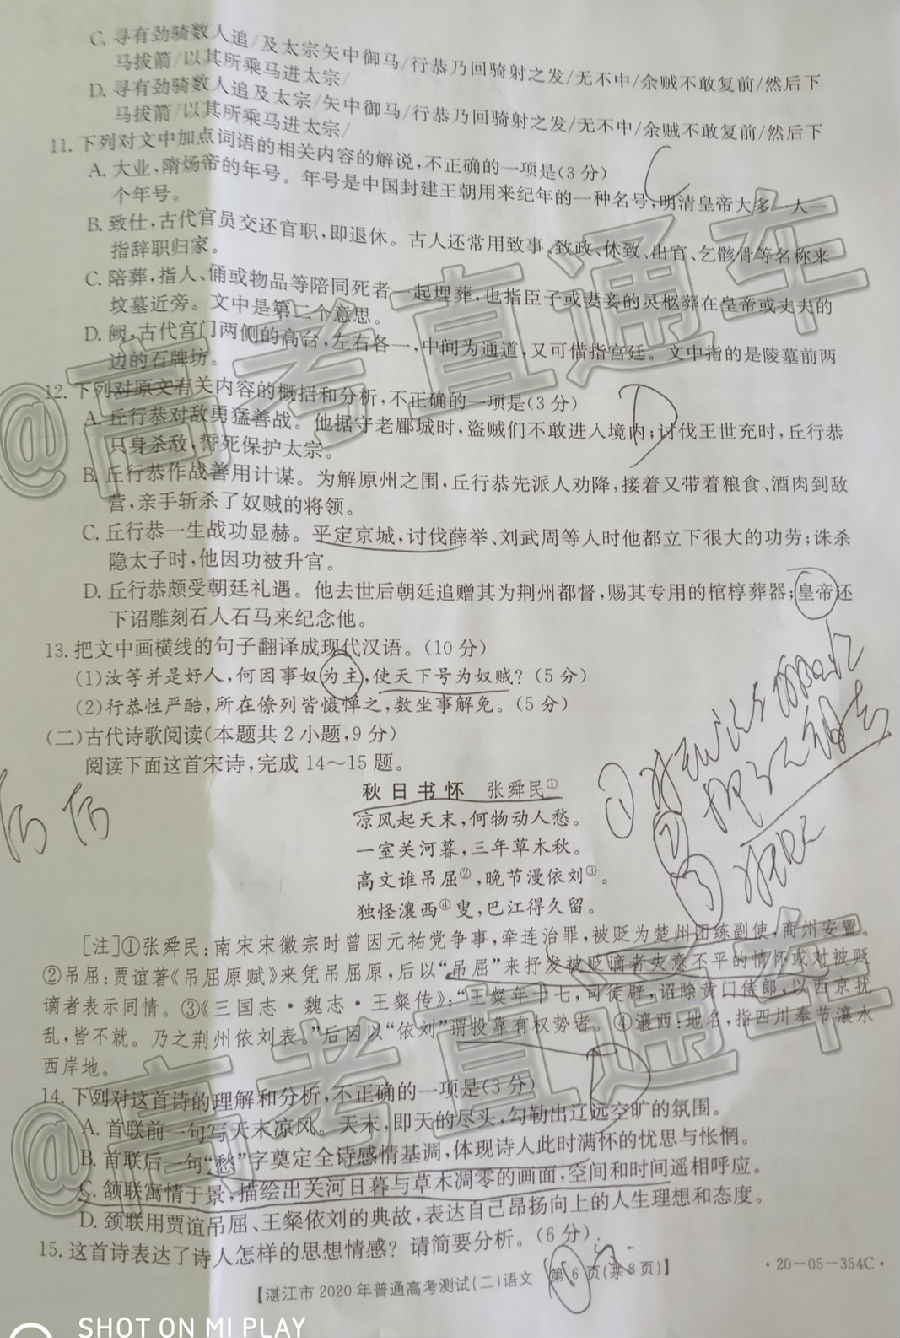 C. 寻有劲骑数人追/及太宗矢中御马/行恭乃回骑射之发/无不中/余贼不敢复前/然后下
马拔箭/以其所乘马进太宗/
D. 寻有劲骑数人追及太宗/矢中御马/行恭乃回骑射之发/无不中/余贼不敢复前/然后下
马拔箭/以其所乘马进太宗/
11. 下列对文中加点词语的相关内容的解说,不正确的一项是(3分)
A. 大业,隋炀帝的年号。年号是中国封建王朝用来纪年的一种名号,明清皇帝大多一人一
个年号。
B. 致仕,古代官员交还官职,即退休。古人还常用致事、致政、休致、出官、乞骸骨等名称来
指辞职归家。
C. 陪葬,指人、俑或物品等陪同死者一起埋葬,也指臣子或妻妾的灵柩葬在皇帝或丈夫的
坟墓近旁。文中是第二个意思。
D. 阙,古代宫门两侧的高台,左右各一,中间为通道,又可借指宫廷。文中指的是陵墓前两
边的石牌坊。
12. 下列对原文有关内容的概括和分析,不正确的一项是(3分)
A. 丘行恭对敌勇猛善战。他据守老郿城时,盗贼们不敢进入境内;讨伐王世充时,丘行恭
只身杀敌,誓死保护太宗。
B. 丘行恭作战善用计谋。为解原州之围,丘行恭先派人劝降,接着又带着粮食、酒肉到敌
营,亲手斩杀了奴贼的将领。
C. 丘行恭一生战功显赫。平定京城,讨伐薛举、刘武周等人时他都立下很大的功劳;诛杀
隐太子时,他因功被升官。
D. 丘行恭颇受朝廷礼遇。他去世后朝廷追赠其为荆州都督,赐其专用的棺椁葬器;皇帝还
下诏雕刻石人石马来纪念他。
13. 把文中画横线的句子翻译成现代汉语。(10分)
(1)汝等并是好人,何因事奴为主,使天下号为奴贼?(5分)
(2)行恭性严酷,所在僚列皆慑惮之,数坐事解免。(5分)
(二)古代诗歌阅读(本题共2小题,9分)
阅读下面这首宋诗,完成14~15题。
秋日书怀 张舜民①
凉风起天末,何物动人愁。
一室关河暮,三年草木秋。
高文谁吊屈②,晚节漫依刘③。
独怪瀼西④叟,巴江得久留。
[注]①张舜民:南宋宋徽宗时曾因元祐党争事,牵连治罪,被贬为楚州团练副使,商州安置。
②吊屈:贾谊著《吊屈原赋》来凭吊屈原,后以“吊屈”来抒发被贬谪者失意不平的情怀或对被贬
谪者表示同情。③《三国志·魏志·王粲传》:“王粲年十七,司徒辟,诏除黄门侍郎,以西京扰
乱,皆不就。乃之荆州依刘表。”后因以“依刘”谓投靠有权势者。④瀼西:地名,指四川奉节瀼水
西岸地。
14. 下列对这首诗的理解和分析,不正确的一项是(3分)
A. 首联前一句写天末凉风。天末,即天的尽头,勾勒出辽远空旷的氛围。
B. 首联后一句“愁”字奠定全诗感情基调,体现诗人此时满怀的忧思与怅惘。
C. 颔联寓情于景,描绘出关河日暮与草木凋零的画面,空间和时间遥相呼应。
D. 颈联用贾谊吊屈、王粲依刘的典故,表达自己昂扬向上的人生理想和态度。
15. 这首诗表达了诗人怎样的思想情感?请简要分析。(6分)
【湛江市2020年普通高考测试(二)语文 第6页(共8页)】
·20-05-354C·
@高考直通车
@高考直通车
SHOT ON MI PLAY
C
D
D